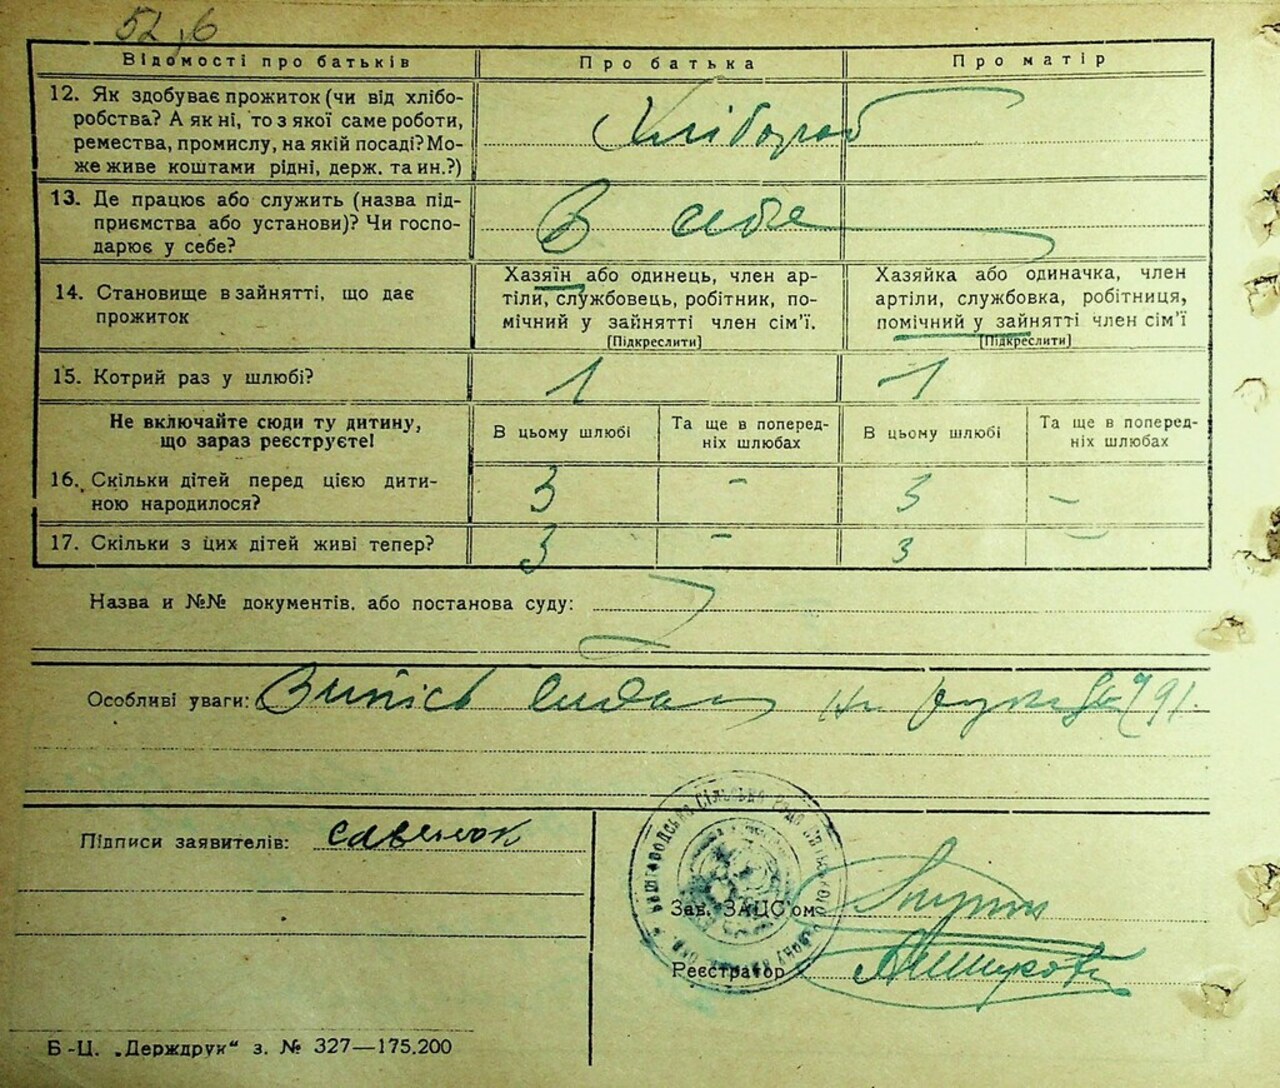 52
Відомості про батьків
Про батька
Про матір
12. Як здобуває прожиток (чи від хлібо-
робства? А як ні, то з якої саме роботи,
ремества, промислу, на якій посаді? Мо-
же живе коштами рідні, держ. та ин.?)
Хлібороб
13. Де працює або служить (назва під-
приємства або установи)? Чи госпо-
дарює у себе?
В себе
14. Становище в зайнятті, що дає
прожиток
Хазяїн або одинець, член ар-
тіли, службовець, робітник, по-
мічний у зайнятті член сім'ї.
[Підкреслити]
Хазяйка або одиначка, член
артіли, службовка, робітниця,
помічний у зайнятті член сім'ї
[Підкреслити]
15. Котрий раз у шлюбі?
1
1
Не включайте сюди ту дитину,
що зараз реєструєте!
В цьому шлюбі
Та ще в поперед-
ніх шлюбах
В цьому шлюбі
Та ще в поперед-
ніх шлюбах
16. Скільки дітей перед цією дити-
ною народилося?
3 - 3 -
17. Скільки з цих дітей живі тепер?
3 - 3 -
Назва и №№ документів, або постанова суду:
Особливі уваги: Випісь видан на руки
Підписи заявителів: савенок
Зав. ЗАЦС'ом
Реєстратор
Б-Ц. „Держдрук" з. № 327—175.200